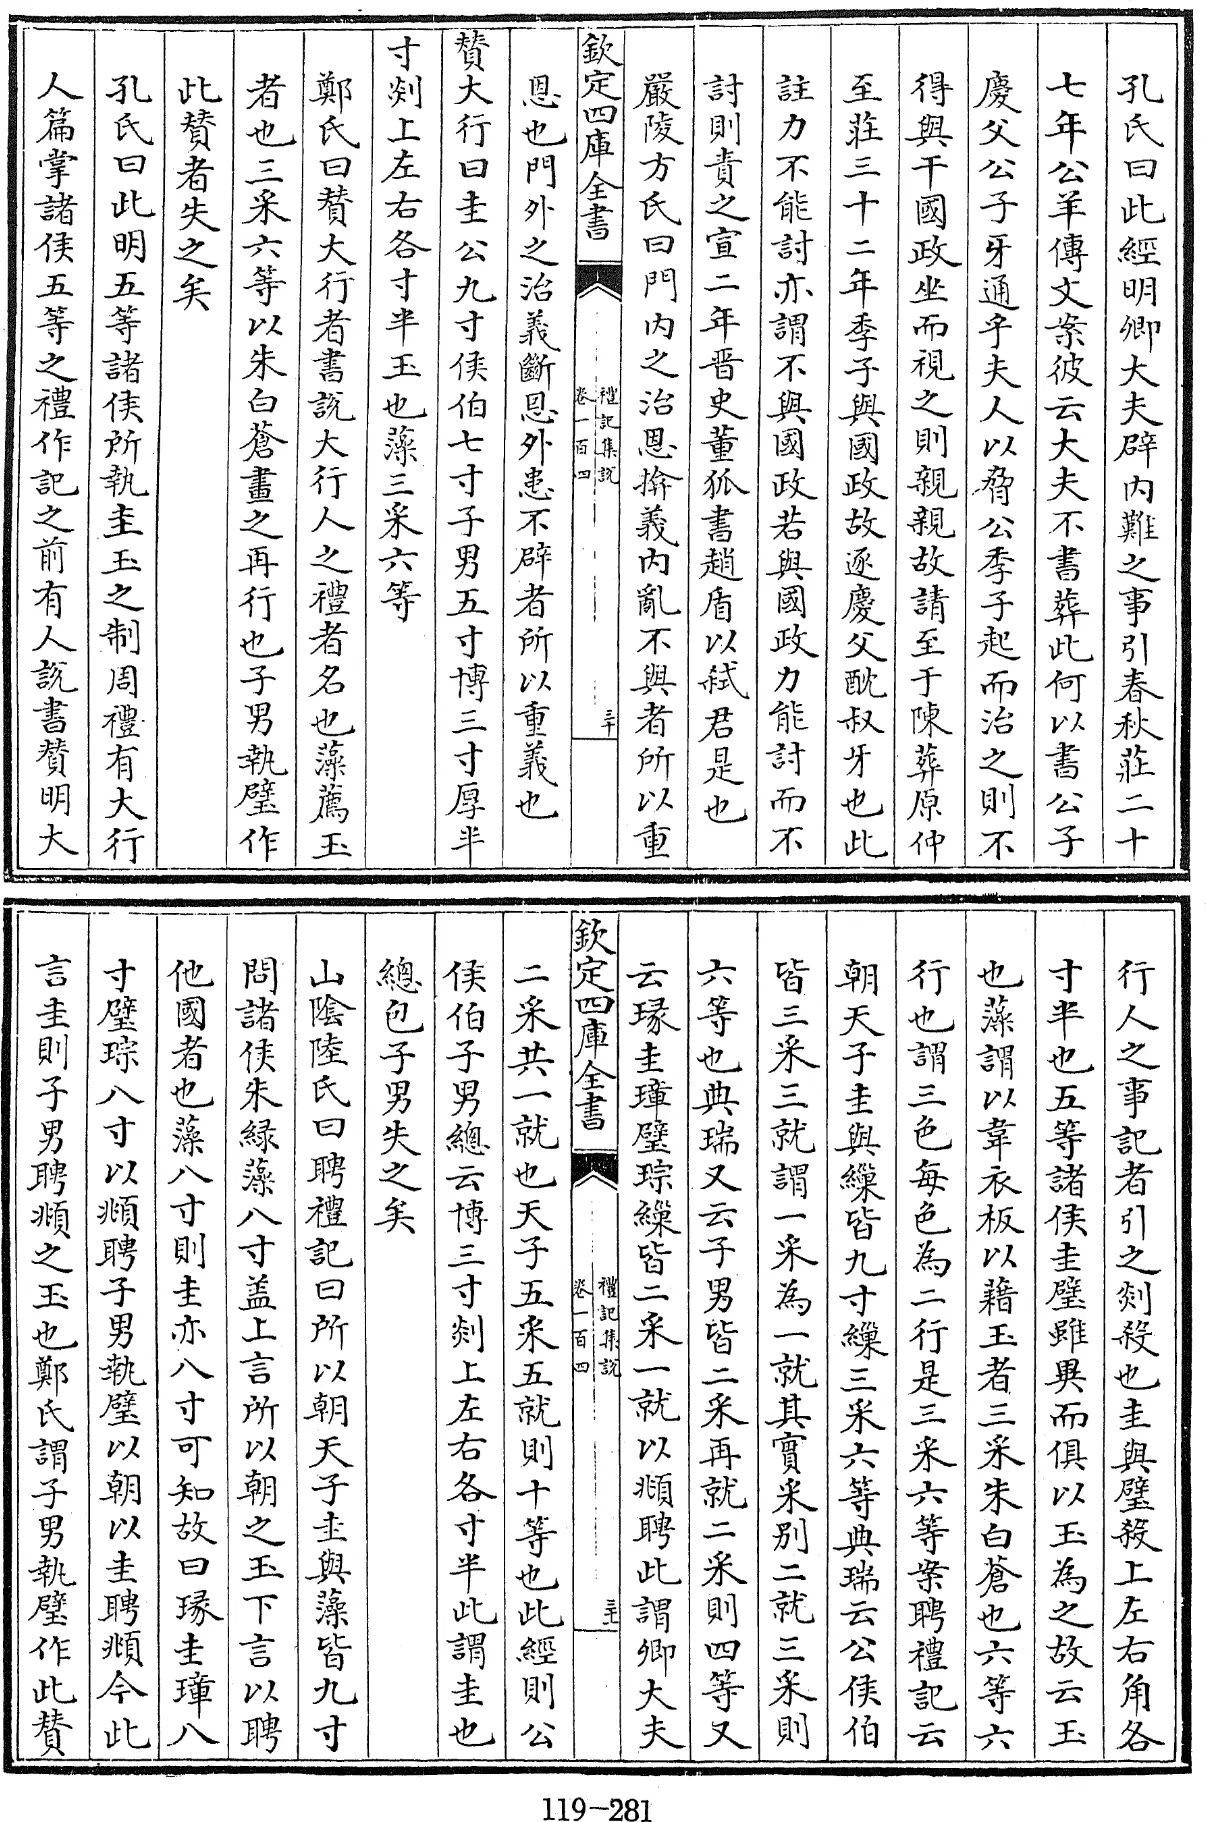 孔氏曰此經明卿大夫辟内難之事引春秋莊二十
七年公羊傳文案彼云大夫不書葬此何以書公子
慶父公子牙通乎夫人以脅公季子起而治之則不
得與干國政坐而視之則親親故請至于陳葬原仲
至莊三十二年季子與國政故逐慶父酖叔牙也此
註力不能討亦謂不與國政若與國政力能討而不
討則責之宣二年晋史董狐書趙盾以弑君是也
嚴陵方氏曰門内之治恩揜義内亂不與者所以重
欽定四庫全書
禮記集説
卷一百四
三十
恩也門外之治義斷恩外患不辟者所以重義也
贊大行曰圭公九寸侯伯七寸子男五寸博三寸厚半
寸剡上左右各寸半玉也藻三采六等
鄭氏曰贊大行者書説大行人之禮者名也藻薦玉
者也三采六等以朱白蒼畫之再行也子男執璧作
此贊者失之矣
孔氏曰此明五等諸侯所執圭玉之制周禮有大行
人篇掌諸侯五等之禮作記之前有人説書贊明大
行人之事記者引之剡殺也圭與璧殺上左右角各
寸半也五等諸侯圭璧雖異而俱以玉為之故云玉
也藻謂以韋衣板以藉玉者三采朱白蒼也六等六
行也謂三色每色為二行是三采六等案聘禮記云
朝天子圭與繅皆九寸繅三采六等典瑞云公侯伯
皆三采三就謂一采為一就其實采别二就三采則
六等也典瑞又云子男皆二采再就二采則四等又
云瑑圭璋璧琮繅皆二采一就以頫聘此謂卿大夫
欽定四庫全書
禮記集説
卷一百四
三十一
二采共一就也天子五采五就則十等也此經則公
侯伯子男總云博三寸剡上左右各寸半此謂圭也
總包子男失之矣
山陰陸氏曰聘禮記曰所以朝天子圭與藻皆九寸
問諸侯朱緑藻八寸盖上言所以朝之玉下言以聘
他國者也藻八寸則圭亦八寸可知故曰瑑圭璋八
寸璧琮八寸以頫聘子男執璧以朝以圭聘頫今此
言圭則子男聘頫之玉也鄭氏謂子男執璧作此贊
119-281